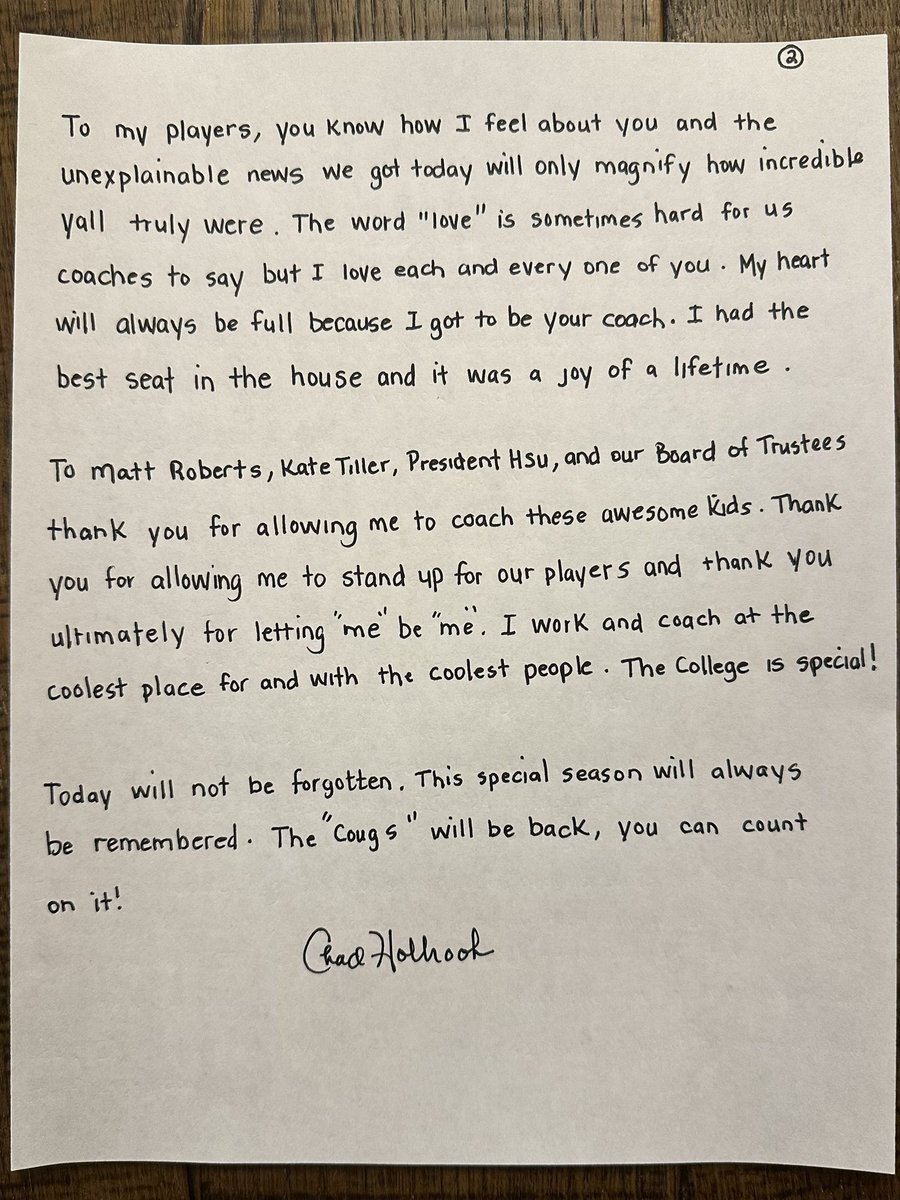 2
To my players, you know how I feel about you and the
unexplainable news we got today will only magnify how incredible
yall truly were. The word "love" is sometimes hard for us
coaches to say but I love each and every one of you. My heart
will always be full because I got to be your coach. I had the
best seat in the house and it was a joy of a lifetime.
To Matt Roberts, Kate Tiller, President Hsu, and our Board of Trustees
thank you for allowing me to coach these awesome kids. Thank
you for allowing me to stand up for our players and thank you
ultimately for letting "me" be "me". I work and coach at the
coolest place for and with the coolest people. The College is special!
Today will not be forgotten. This special season will always
be remembered. The "Cougs" will be back, you can count
on it!
Chad Holbrook